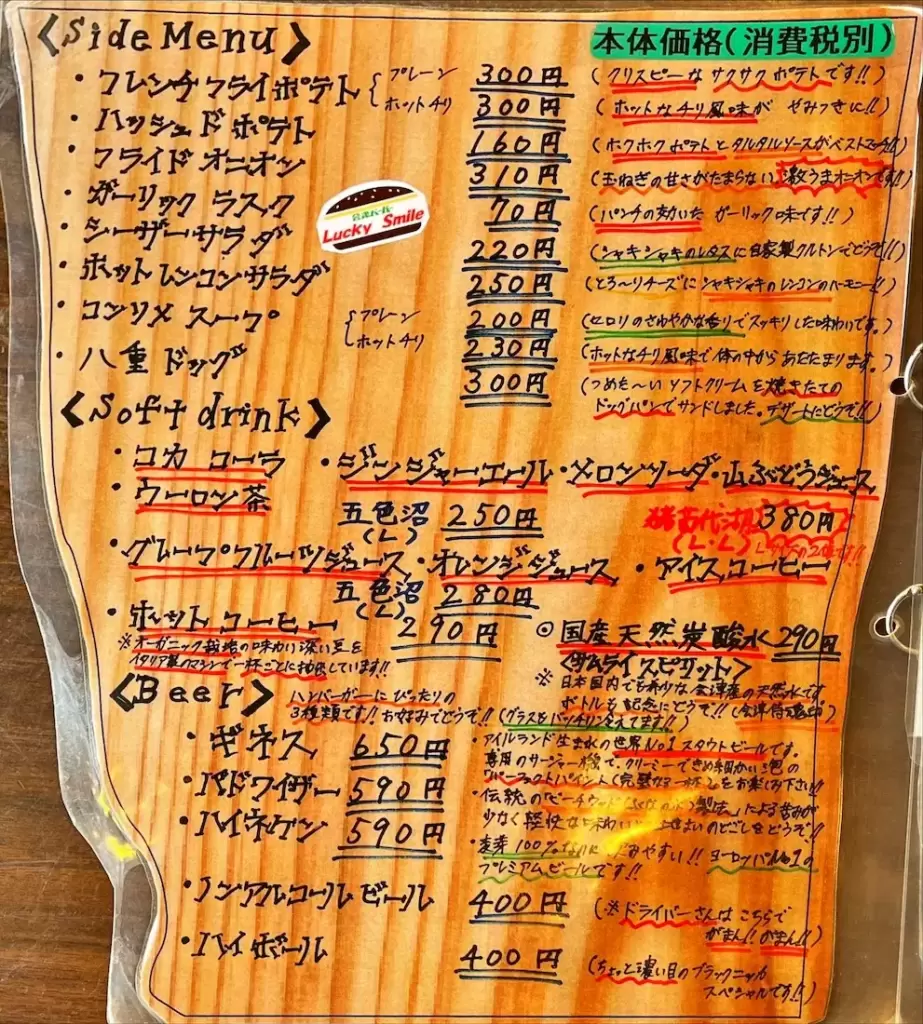 〈Side Menu〉
本体価格(消費税別)
・フレンチフライポテト { プレーン 300円 (クリスピーなサクサクポテトです!!)
ホットチリ 300円 (ホットなチリ風味が やみつきに!!)
・ハッシュドポテト 160円 (ホクホクポテトとタルタルソースがベストマッチ!!)
・フライドオニオン 310円 (玉ねぎの甘さがたまらない激うまオニオンです!!)
・ガーリックラスク 70円 (パンチの効いた ガーリック味です!!)
・シーザーサラダ 220円 (シャキシャキのレタスに自家製クルトンでどうぞ!!)
・ホットレンコンサラダ 250円 (とろ〜りチーズにシャキシャキのレンコンのハーモニー!!)
・コンソメスープ { プレーン 200円 (セロリのさわやかな香りでスッキリした味わいです。)
ホットチリ 230円 (ホットなチリ風味で体の中からあたたまります。)
・八重ドッグ 300円 (つめた〜いソフトクリームを焼きたての
ドッグパンでサンドしました。デザートにどうぞ!!)
Lucky Smile
〈Soft drink〉
・コカ コーラ ・ジンジャーエール ・メロンソーダ ・山ぶどうジュース
・ウーロン茶
五色沼 (L) 250円 猪苗代湖 (L・L) 380円
・グレープフルーツジュース ・オレンジジュース ・アイスコーヒー
五色沼 (L) 280円
・ホットコーヒー 290円
※オーガニック栽培の味わい深い豆を
イタリア製のマシンで一杯ごとに抽出しています!!
◎国産天然炭酸水 290円
〈サムライスピリット〉
※日本国内でも希少な会津産の天然水です
ボトルも記念にどうぞ!!
〈Beer〉 ハンバーガーにぴったりの
3種類です!! お好みでどうぞ!! (グラスもバッチリ冷えてます!!)
・ギネス 650円
・アイルランド生まれの世界No1スタウトビールです。
専用のサージャー機で、クリーミーできめ細かい泡の
(完璧な一杯)をお楽しみ下さい!!
・バドワイザー 590円
・伝統のビーチウッド 製法」による苦みが
少なく軽快な味わい のどごしをどうぞ!!
・ハイネケン 590円
・麦芽100% みやすい!! ヨーロッパNo1の
プレミアムビールです!!
・ノンアルコールビール 400円 (※ドライバーさんはこちらで
がまん!! がまん!!)
・ハイボール 400円 (ちょっと濃い目のブラックニッカ
スペシャルです!!)